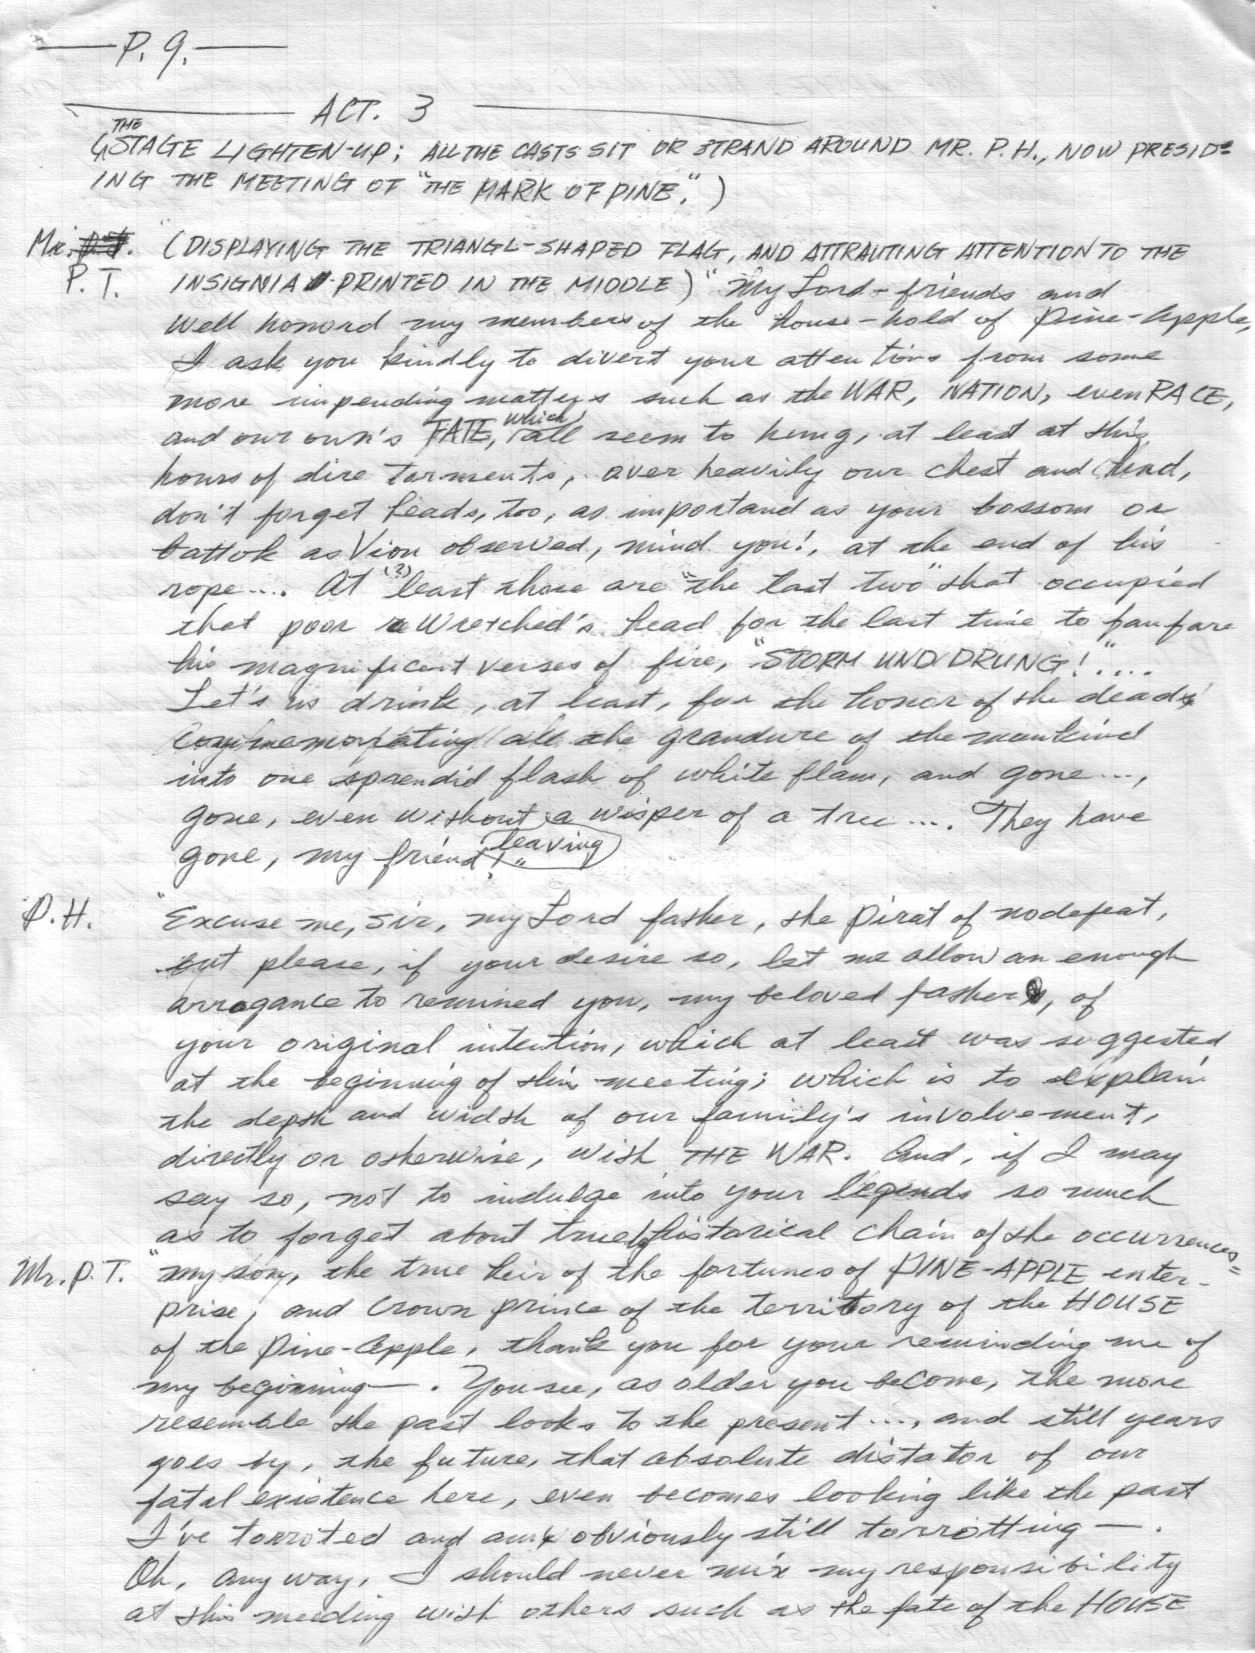 P. 9.
ACT. 3
(THE STAGE LIGHTEN-UP; ALL THE CASTS SIT OR STRAND AROUND MR. P.H., NOW PRESID=
ING THE MEETING OF "THE MARK OF PINE.")
Mr. P.T. (DISPLAYING THE TRIANGL-SHAPED FLAG, AND ATTRAUTING ATTENTION TO THE
INSIGNIA PRINTED IN THE MIDDLE) "My Lord-friends and
well honord my members of the house-hold of Pine-Apple,
I ask you kindly to divert your attentions from some
more impending matters such as the WAR, NATION, even RACE,
and our own's FATE, which all seem to hung, at least at this
hours of dire torments, over heavily our chest and hind,
don't forget heads, too, as importand as your bossom or
battok as Vion observed, mind you!, at the end of his
rope.... At (?) least those are "the last two" that occupied
that poor Wretched's head for the last time to fanfare
his magnificent verses of fire, "STORM UND DRUNG!"....
Let's us drink, at least, for the honor of the dead,
commemorating all the grandure of the mankind
into one sprendid flash of white flam, and gone...,
gone, even without leaving a wisper of a tree.... They have
gone, my friend!"
P.H. "Excuse me, sir, my Lord father, the Pirat of no defeat,
but please, if your desire so, let me allow an enough
arrogance to remined you, my beloved father, of
your original intention, which at least was suggested
at the beginning of this meeting; which is to explain
the depth and width of our family's involvement,
directly or otherwise, with THE WAR. And, if I may
say so, not to indulge into your legends so much
as to forget about true historical chain of the occurrences="
Mr. P.T. "My son, the true heir of the fortunes of PINE-APPLE enter-
prise, and crown prince of the territory of the HOUSE
of the Pine-Apple, thank you for your reminding me of
my beginning—. You see, as older you become, the more
resemble the past looks to the present..., and still years
goes by, the future, that absolute distator of our
fatal existence here, even becomes looking like the past
I've torroted and am obviously still torrotting—.
Oh, any way, I should never mix my responsibility
at this meeding with others such as the fate of the HOUSE